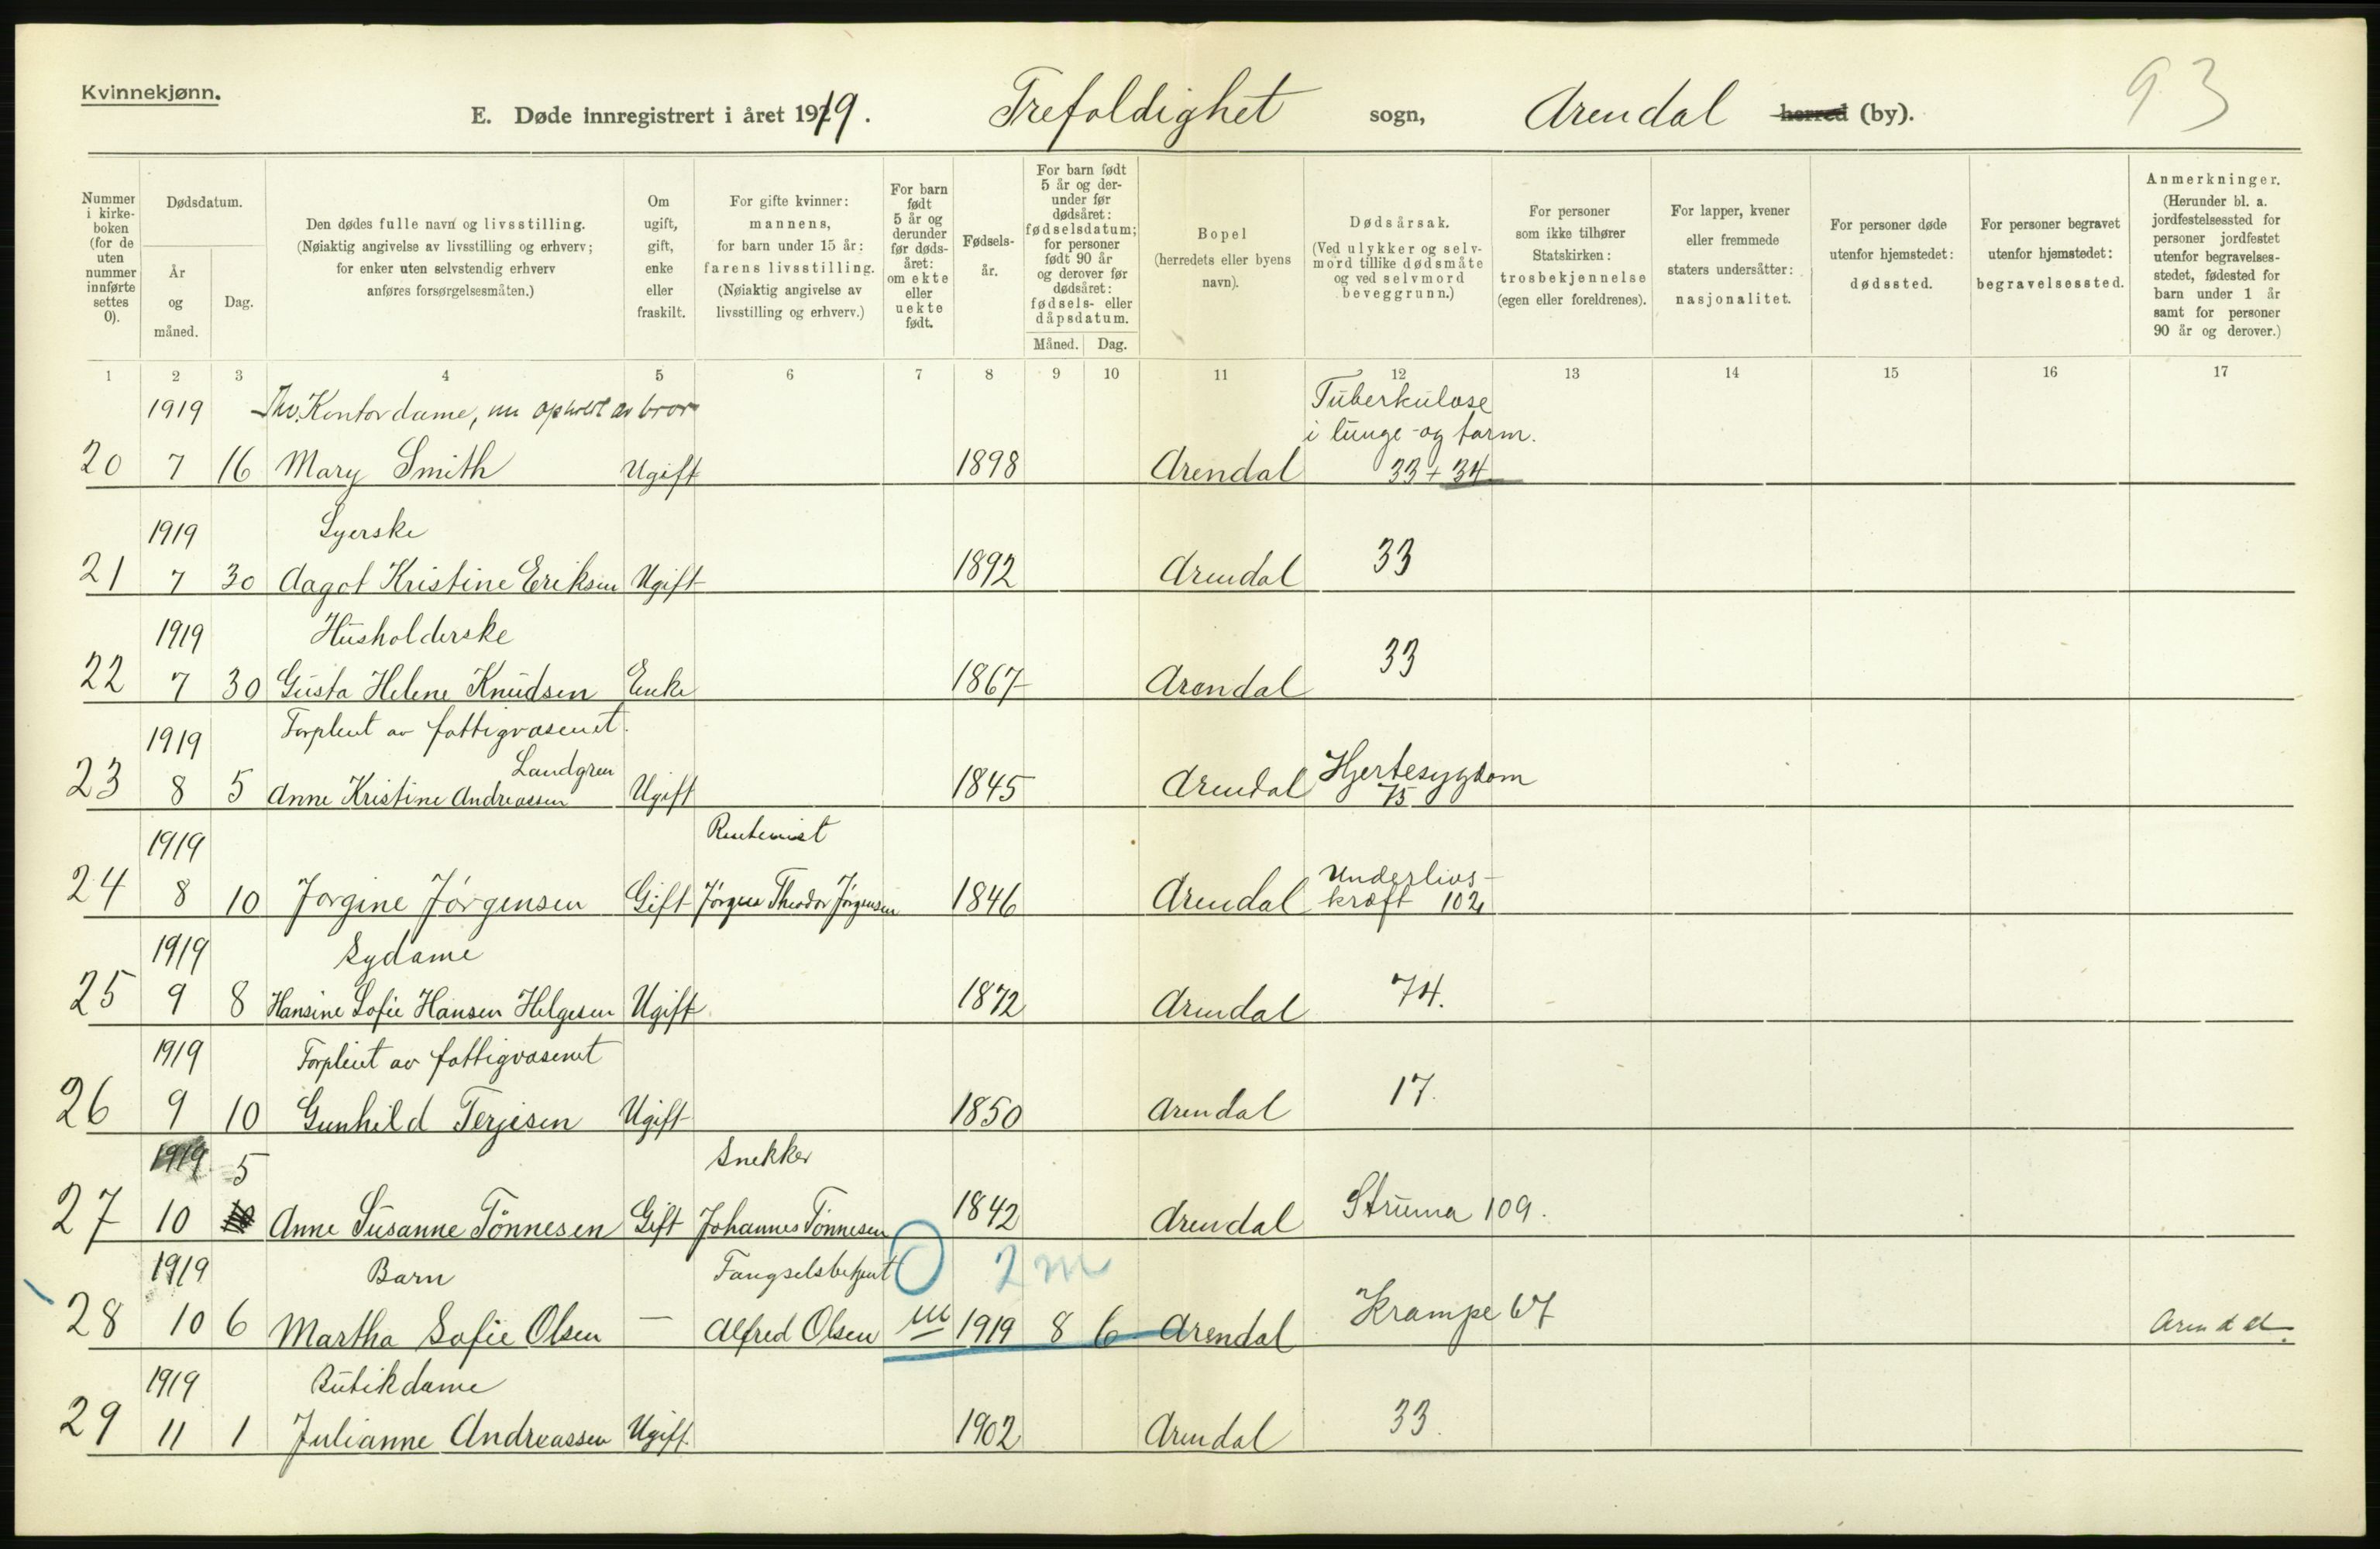 Kvinnekjønn.
93
E. Døde innregistrert i året 1919. Trefoldighet sogn, Arendal herred (by).
Nummer i kirkeboken (for de uten nummer innførte settes 0).
Dødsdatum.
År og måned.
Dag.
Den dødes fulle navn og livsstilling. (Nøiaktig angivelse av livsstilling og erhverv; for enker uten selvstendig erhverv anføres forsørgelsesmåten.)
Om ugift, gift, enke eller fraskilt.
For gifte kvinner: mannens, for barn under 15 år: farens livsstilling. (Nøiaktig angivelse av livsstilling og erhverv.)
For barn født 5 år og derunder før dødsåret: om ekte eller uekte født.
Fødselsår.
For barn født 5 år og derunder før dødsåret: fødselsdatum; for personer født 90 år og derover før dødsåret: fødsels- eller dåpsdatum.
Måned. Dag.
Bopel (herredets eller byens navn).
Dødsårsak. (Ved ulykker og selvmord tillike dødsmåte og ved selvmord beveggrunn.)
For personer som ikke tilhører Statskirken: trosbekjennelse (egen eller foreldrenes).
For lapper, kvener eller fremmede staters undersåtter: nasjonalitet.
For personer døde utenfor hjemstedet: dødssted.
For personer begravet utenfor hjemstedet: begravelsessted.
Anmerkninger. (Herunder bl. a. jordfestelsessted for personer jordfestet utenfor begravelsesstedet, fødested for barn under 1 år samt for personer 90 år og derover.)
1 2 3 4 5 6 7 8 9 10 11 12 13 14 15 16 17
1919 Kontordame, nu opholdt av bror Tuberkulose
i lunge- og tarm.
20 7 16 Mary Smith Ugift 1898 Arendal 33 + 34
1919 Syerske
21 7 30 Aagot Kristine Eriksen Ugift 1892 Arendal 33
1919 Husholderske
22 7 30 Gusta Helene Knudsen Enke 1867 Arendal 33
1919 Forpleiet av fattigvæsenet.
Landgren
23 8 5 Anne Kristine Andreassen Ugift 1845 Arendal Hjertesygdom 75
1919 Rentenist
24 8 10 Jorgine Jörgensen Gift Jörgen Theodor Jörgensen 1846 Arendal Underlivs-kræft 102
1919 Sydame
25 9 8 Hansine Sofie Hansen Helgesen Ugift 1872 Arendal 74.
1919 Forpleiet av fattigvæsenet
26 9 10 Gunhild Terjesen Ugift 1850 Arendal 17.
1919 5 Snekker
27 10 Anne Susanne Tönnesen Gift Johannes Tönnesen 1842 Arendal Struma 109.
1919 Barn Fængselsbetjent 0 2 m
28 10 6 Martha Sofie Olsen — Alfred Olsen 1919 8 6 Arendal Krampe 67 Arendal.
1919 Butikdame
29 11 1 Julianne Andreassen Ugift 1902 Arendal 33.